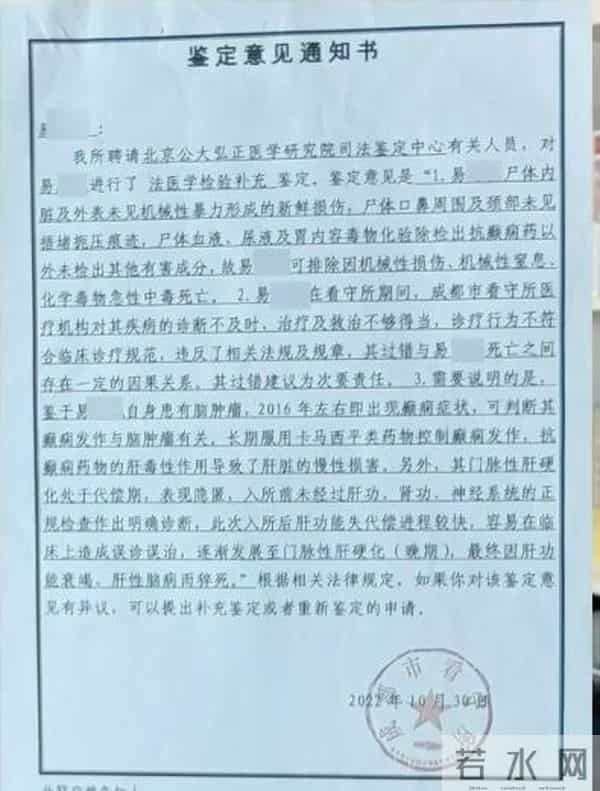 鉴定意见通知书
:
我所聘请北京公大弘正医学研究院司法鉴定中心有关人员，对
易 进行了 法医学检验补充 鉴定。鉴定意见是“1.易 尸体内
脏及外表未见机械性暴力形成的新鲜损伤，尸体口鼻周围及颈部未见
捂堵扼压痕迹，尸体血液、尿液及胃内容毒物化验除检出抗癫痫药以
外未检出其他有害成分，故易 可排除因机械性损伤、机械性窒息、
化学毒物急性中毒死亡。2.易 在看守所期间，成都市看守所医
疗机构对其疾病的诊断不及时，治疗及救治不够得当，诊疗行为不符
合临床诊疗规范，违反了相关法规及规章，其过错与易 死亡之间
存在一定的因果关系，其过错建议为次要责任。3.需要说明的是，
鉴于易 自身患有脑肿瘤，2016年左右即出现癫痫症状，可判断其
癫痫发作与脑肿瘤有关，长期服用卡马西平类药物控制癫痫发作，抗
癫痫药物的肝毒性作用导致了肝脏的慢性损害。另外，其门脉性肝硬
化处于代偿期，表现隐匿，入所前未经过肝功、肾功、神经系统的正
规检查作出明确诊断，此次入所后肝功能失代偿进程较快，容易在临
床上造成误诊误治，逐渐发展至门脉性肝硬化（晚期），最终因肝功
能衰竭、肝性脑病而猝死。”根据相关法律规定，如果你对该鉴定意
见有异议，可以提出补充鉴定或者重新鉴定的申请。
2022年10月30日
若水网